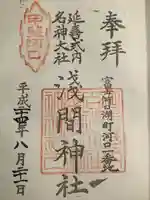 奉拝
富士河口湖町河口一番地
延喜式内
名神大社
浅間神社
平成二十四年八月二十一日